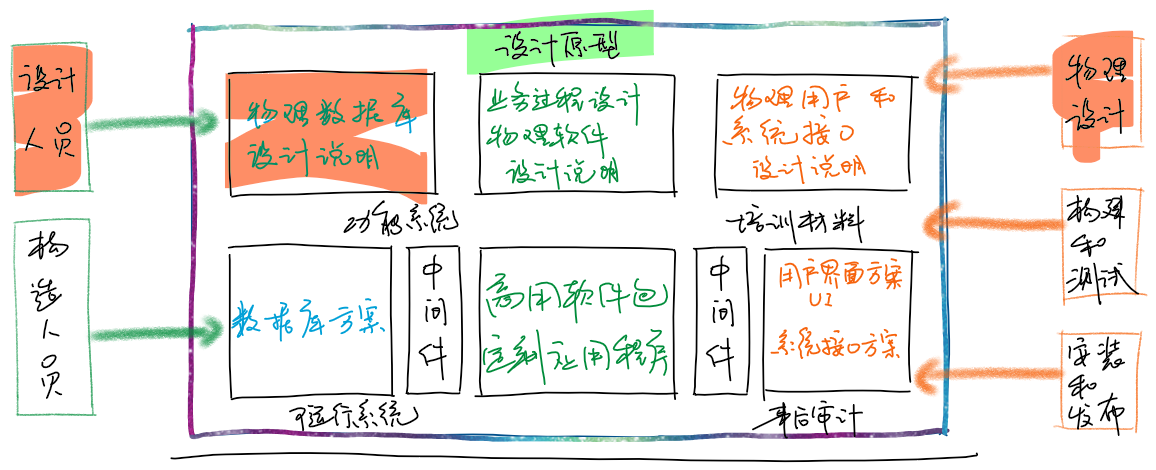 设计原型
设计
人员
物理数据库
设计说明
业务过程设计
物理软件
设计说明
物理用户和
系统接口
设计说明
物理
设计
功能系统
培训材料
构
造
人
员
数据库方案
中
间
件
商用软件包
定制应用程序
中
间
件
用户界面方案
UI
系统接口方案
构建
和
测试
可运行系统
事后审计
安装
和
发布